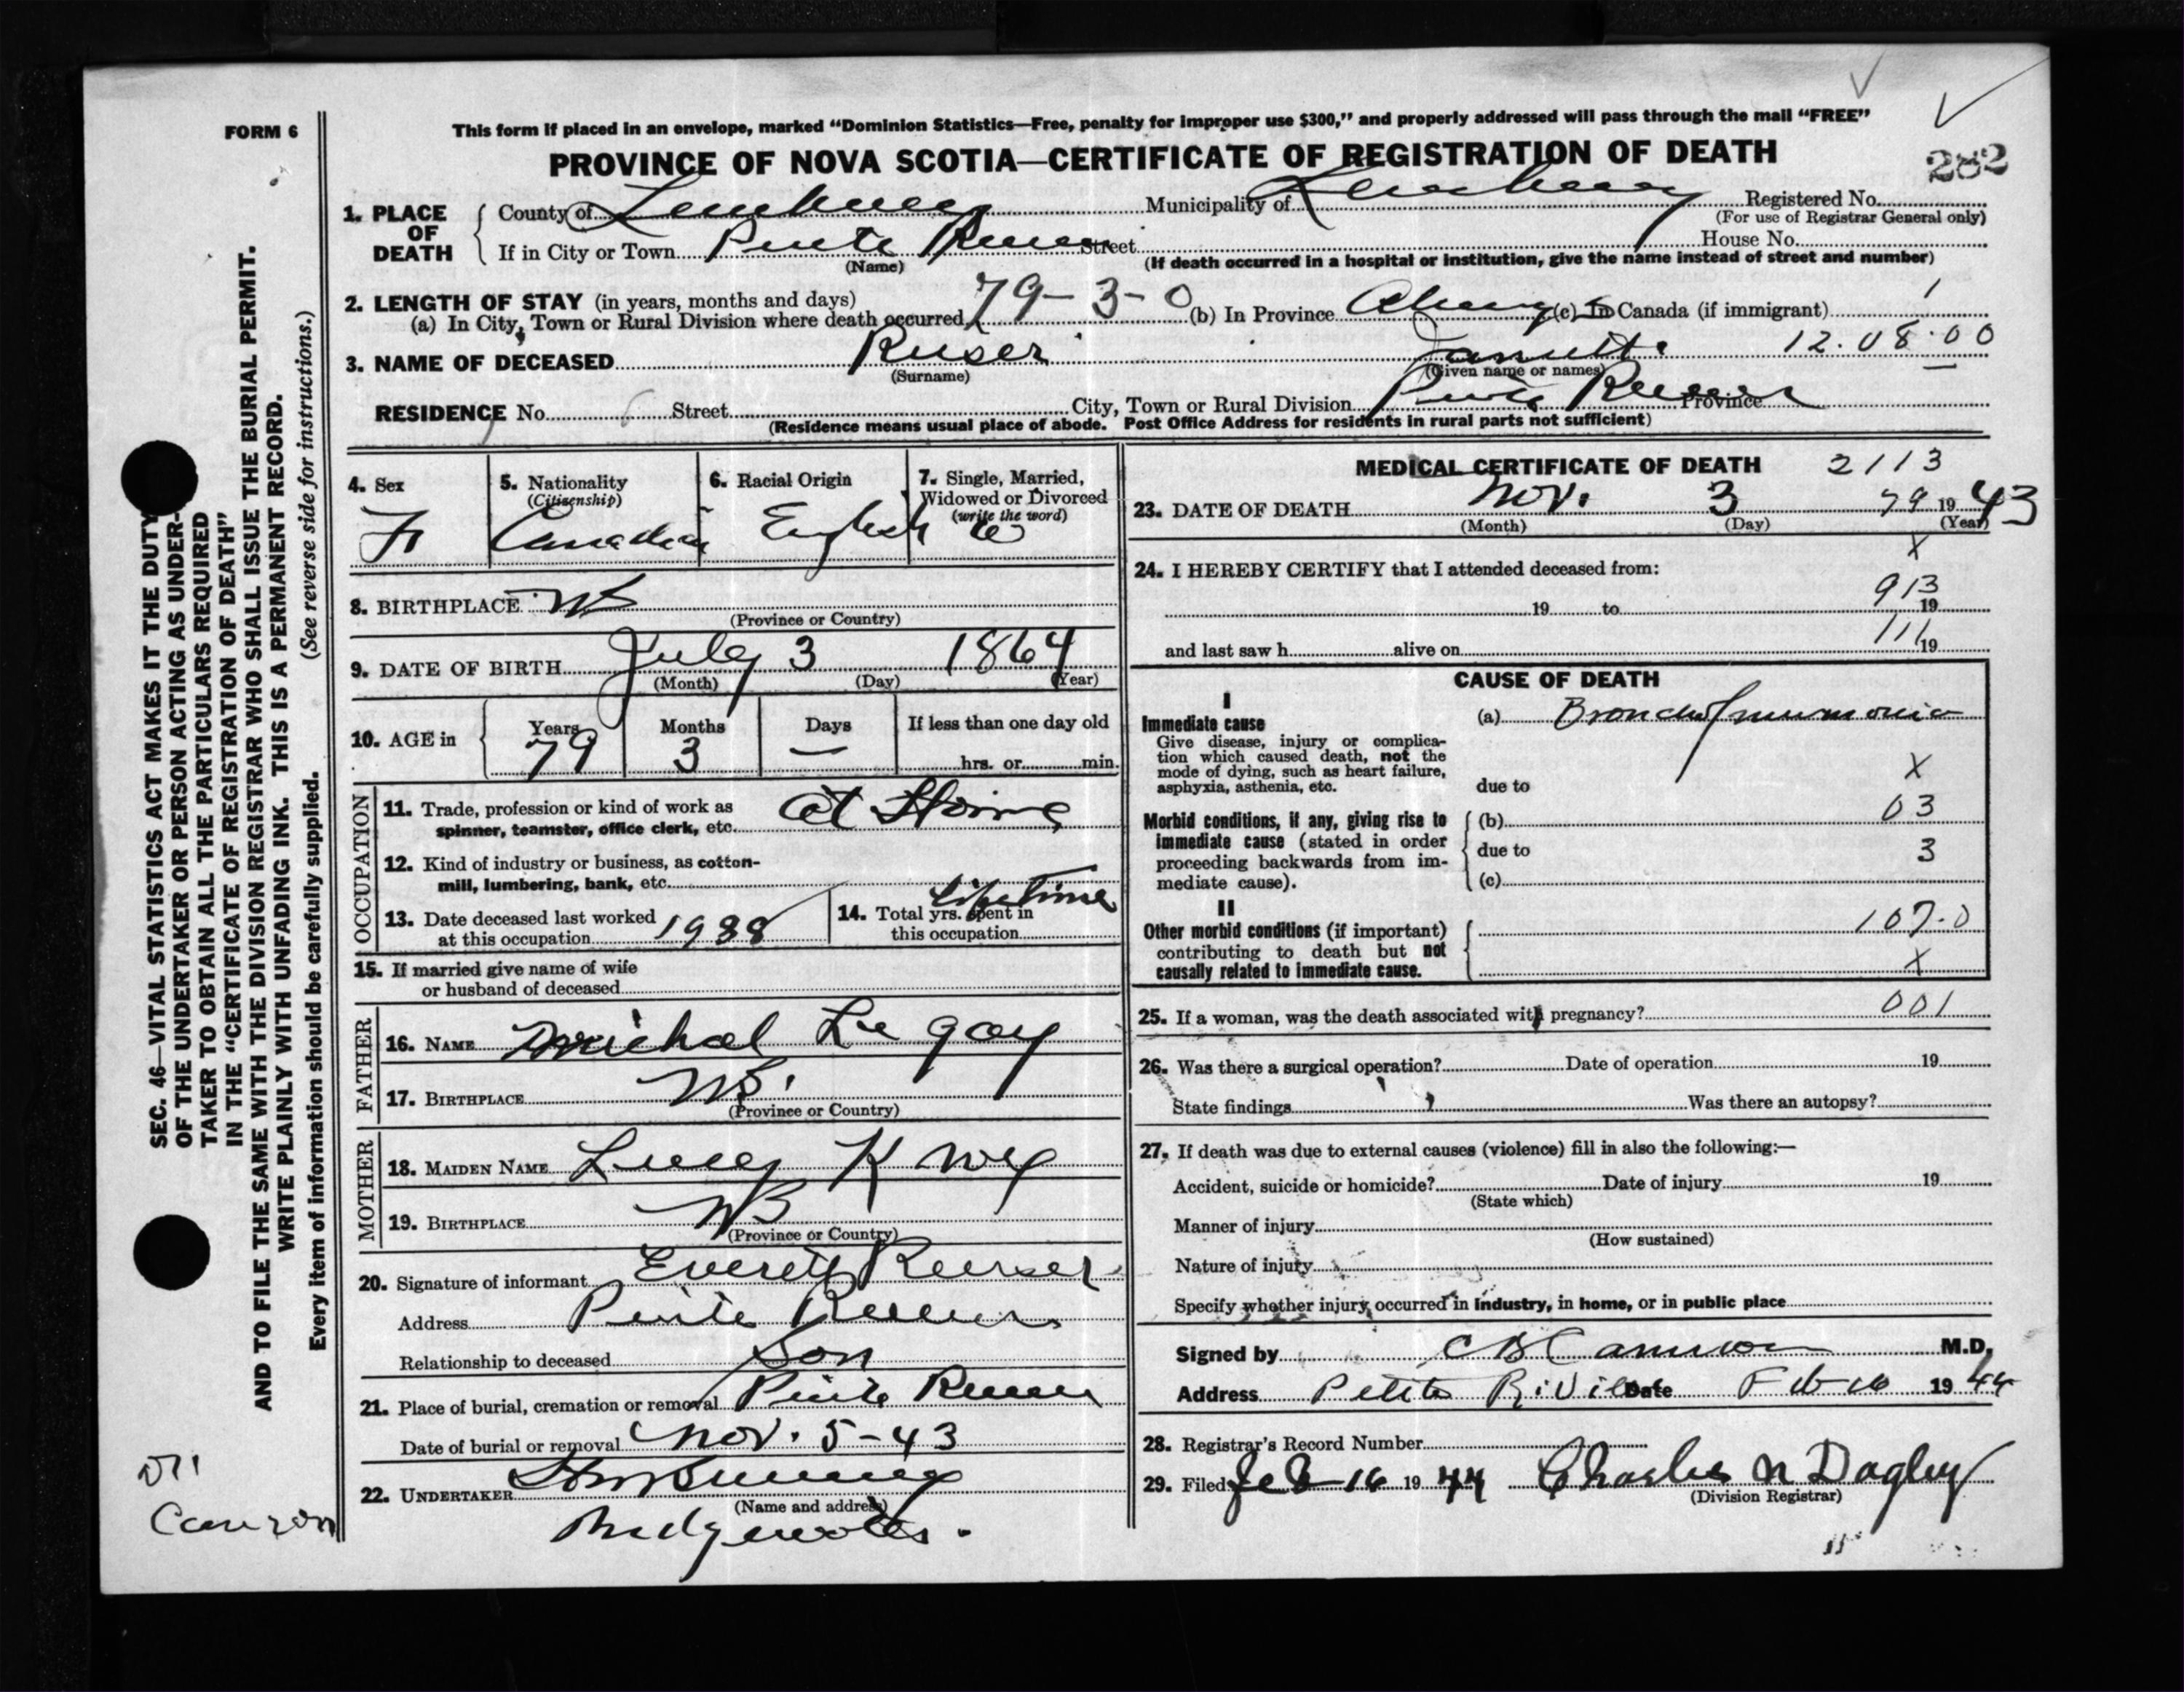 FORM 6
This form if placed in an envelope, marked “Dominion Statistics—Free, penalty for improper use $300,” and properly addressed will pass through the mail “FREE”
PROVINCE OF NOVA SCOTIA—CERTIFICATE OF REGISTRATION OF DEATH
282
1. PLACE OF DEATH
County of Lunenburg Municipality of Lunenburg Registered No.
(For use of Registrar General only)
If in City or Town Street House No.
(Name) (If death occurred in a hospital or institution, give the name instead of street and number)
2. LENGTH OF STAY (in years, months and days)
(a) In City, Town or Rural Division where death occurred 79-3-0 (b) In Province Always (c) In Canada (if immigrant)
3. NAME OF DECEASED 12.08.00
(Surname) (Given name or names)
RESIDENCE No. Street City, Town or Rural Division Province
(Residence means usual place of abode. Post Office Address for residents in rural parts not sufficient)
4. Sex F
5. Nationality (Citizenship) Canadian
6. Racial Origin English
7. Single, Married, Widowed or Divorced (write the word) W
8. BIRTHPLACE NS
(Province or Country)
9. DATE OF BIRTH July 3 1864
(Month) (Day) (Year)
10. AGE in Years 79 Months 3 Days — If less than one day old
hrs. or min.
OCCUPATION
11. Trade, profession or kind of work as spinner, teamster, office clerk, etc. At Home
12. Kind of industry or business, as cotton-mill, lumbering, bank, etc.
13. Date deceased last worked at this occupation 1938
14. Total yrs. spent in this occupation Life Time
15. If married give name of wife
or husband of deceased
FATHER
16. NAME Michal Le gay
17. BIRTHPLACE NS.
(Province or Country)
MOTHER
18. MAIDEN NAME Lucy
19. BIRTHPLACE NS
(Province or Country)
20. Signature of informant Everett
Address
Relationship to deceased Son
21. Place of burial, cremation or removal
Date of burial or removal Nov. 5-43
22. UNDERTAKER
(Name and address)
Bridgewater.
MEDICAL CERTIFICATE OF DEATH 2113
23. DATE OF DEATH Nov. 3 79 19 43
(Month) (Day) (Year)
X
24. I HEREBY CERTIFY that I attended deceased from:
913
19 to 19
111
and last saw h alive on 19
CAUSE OF DEATH
I
Immediate cause (a) Bronchopneumonia
Give disease, injury or complication which caused death, not the mode of dying, such as heart failure, asphyxia, asthenia, etc.
X
due to
03
Morbid conditions, if any, giving rise to immediate cause (stated in order proceeding backwards from immediate cause).
(b)
due to 3
(c)
II
Other morbid conditions (if important) contributing to death but not causally related to immediate cause.
107.0
X
25. If a woman, was the death associated with pregnancy? 001
26. Was there a surgical operation? Date of operation 19
State findings Was there an autopsy?
27. If death was due to external causes (violence) fill in also the following:—
Accident, suicide or homicide? Date of injury 19
(State which)
Manner of injury
(How sustained)
Nature of injury
Specify whether injury occurred in industry, in home, or in public place
Signed by C B Cameron M.D.
Address Petite Riviere Date Feb 16 1944
28. Registrar's Record Number
29. Filed Feb 16 1944 Charles N Dagley
(Division Registrar)
SEC. 46—VITAL STATISTICS ACT MAKES IT THE DUTY
OF THE UNDERTAKER OR PERSON ACTING AS UNDER-
TAKER TO OBTAIN ALL THE PARTICULARS REQUIRED
IN THE “CERTIFICATE OF REGISTRATION OF DEATH”
AND TO FILE THE SAME WITH THE DIVISION REGISTRAR WHO SHALL ISSUE THE BURIAL PERMIT.
WRITE PLAINLY WITH UNFADING INK. THIS IS A PERMANENT RECORD.
(See reverse side for instructions.)
Every item of information should be carefully supplied.